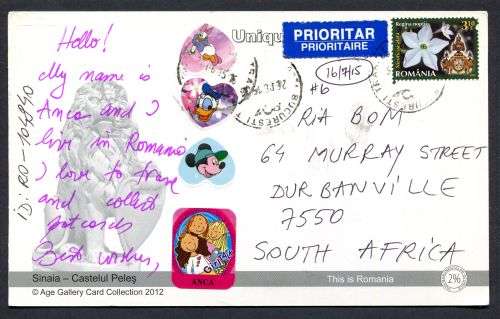 Hello!
My name is
Anca and I
live in Romania
I love to
and collect
postcards
Best wishes,
ID: RO-104940
Unique
PRIORITAR
PRIORITAIRE
16/7/15
#6
Regina nopții
ROMÂNIA
BUCURESTI
RIA BOM
64 MURRAY STREET
DURBANVILLE
7550
SOUTH AFRICA
Girls
ANCA
Sinaia – Castelul Peleș
© Age Gallery Card Collection 2012
This is Romania
2%